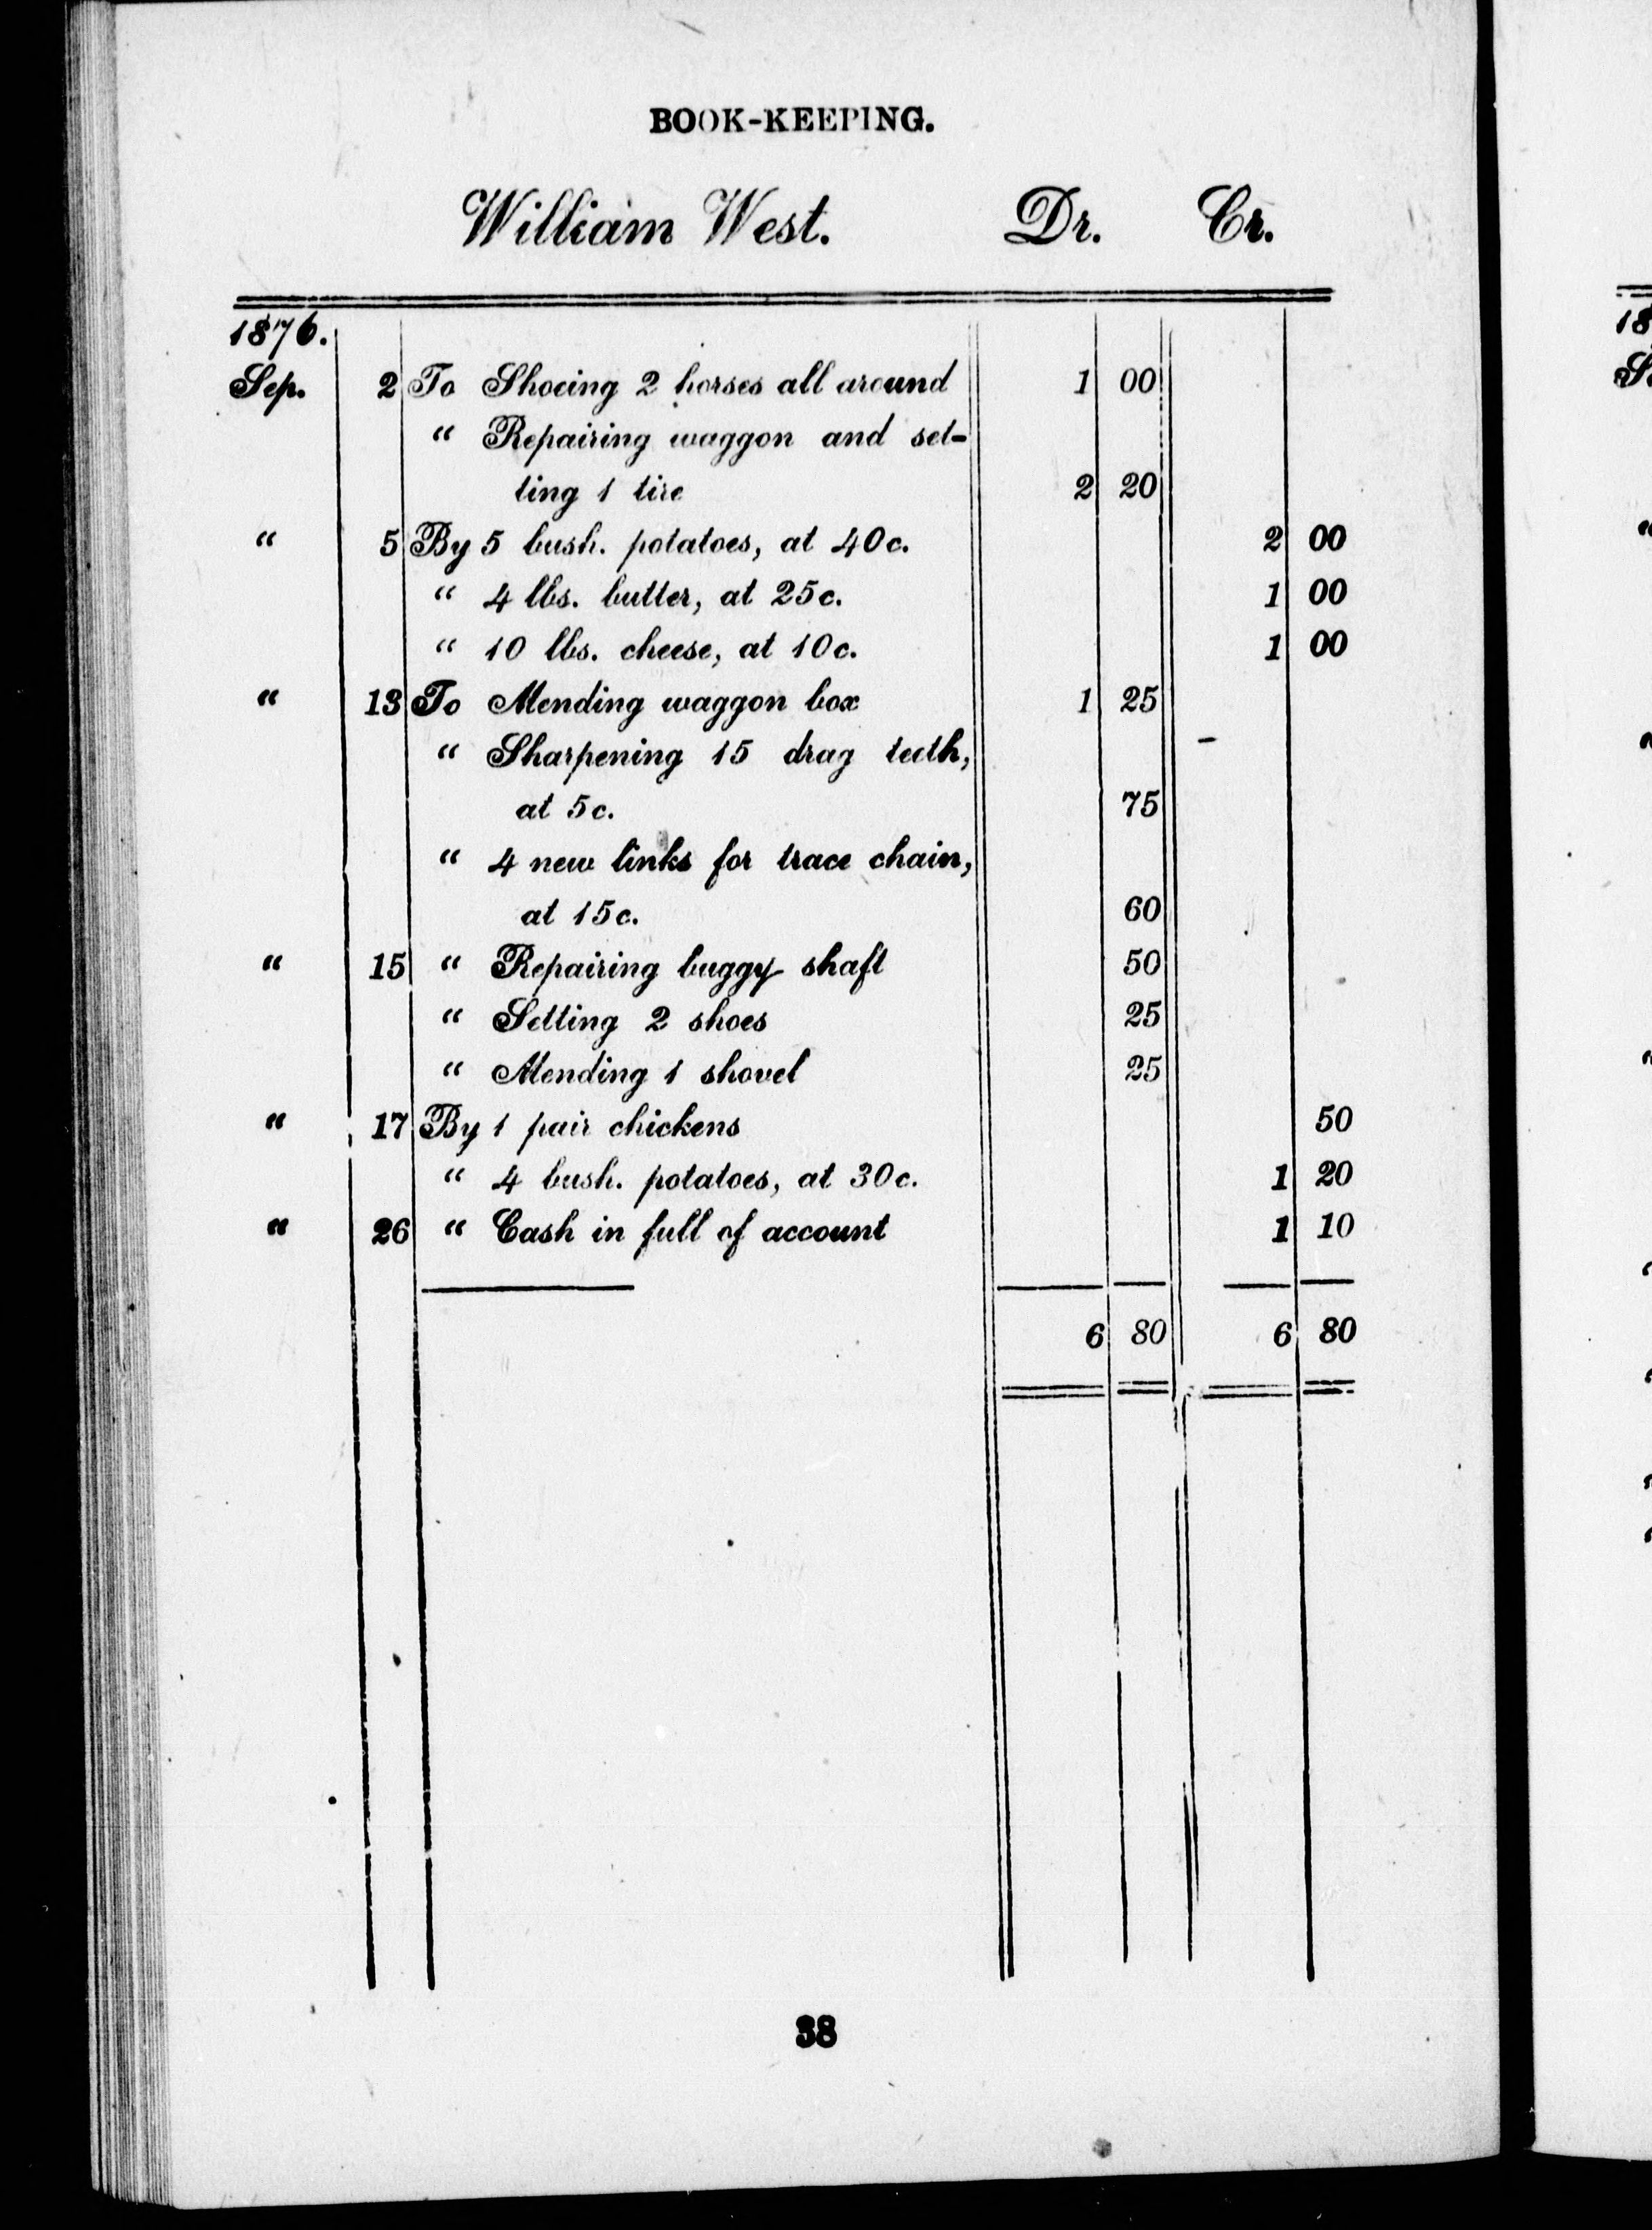 BOOK-KEEPING.
William West. Dr. Cr.
1876.
Sep. 2 To Shoeing 2 horses all around 1 00
“ Repairing waggon and set-
ting 1 tire 2 20
“ 5 By 5 bush. potatoes, at 40c. 2 00
“ 4 lbs. butter, at 25c. 1 00
“ 10 lbs. cheese, at 10c. 1 00
“ 13 To Mending waggon box 1 25
“ Sharpening 15 drag teeth,
at 5c. 75
“ 4 new links for trace chain,
at 15c. 60
“ 15 “ Repairing buggy shaft 50
“ Setting 2 shoes 25
“ Mending 1 shovel 25
“ 17 By 1 pair chickens 50
“ 4 bush. potatoes, at 30c. 1 20
“ 26 “ Cash in full of account 1 10
6 80 6 80
38